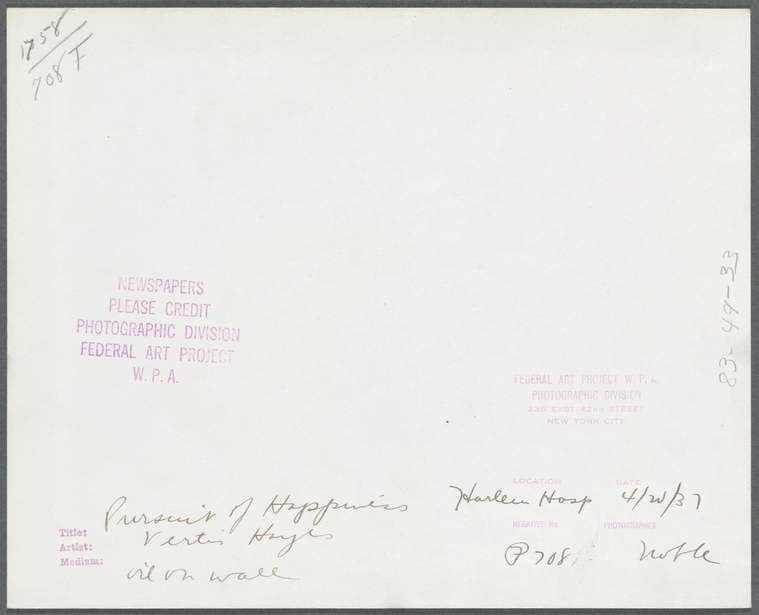 1758
708 F
NEWSPAPERS
PLEASE CREDIT
PHOTOGRAPHIC DIVISION
FEDERAL ART PROJECT
W. P. A.
83-49-33
FEDERAL ART PROJECT W. P. A.
PHOTOGRAPHIC DIVISION
235 EAST 42ND STREET
NEW YORK CITY
LOCATION DATE
Harlem Hosp 4/20/37
NEGATIVE No. PHOTOGRAPHER
P 708 Noble
Title: Pursuit of Happiness
Artist: Vertis Hayes
Medium: oil on wall